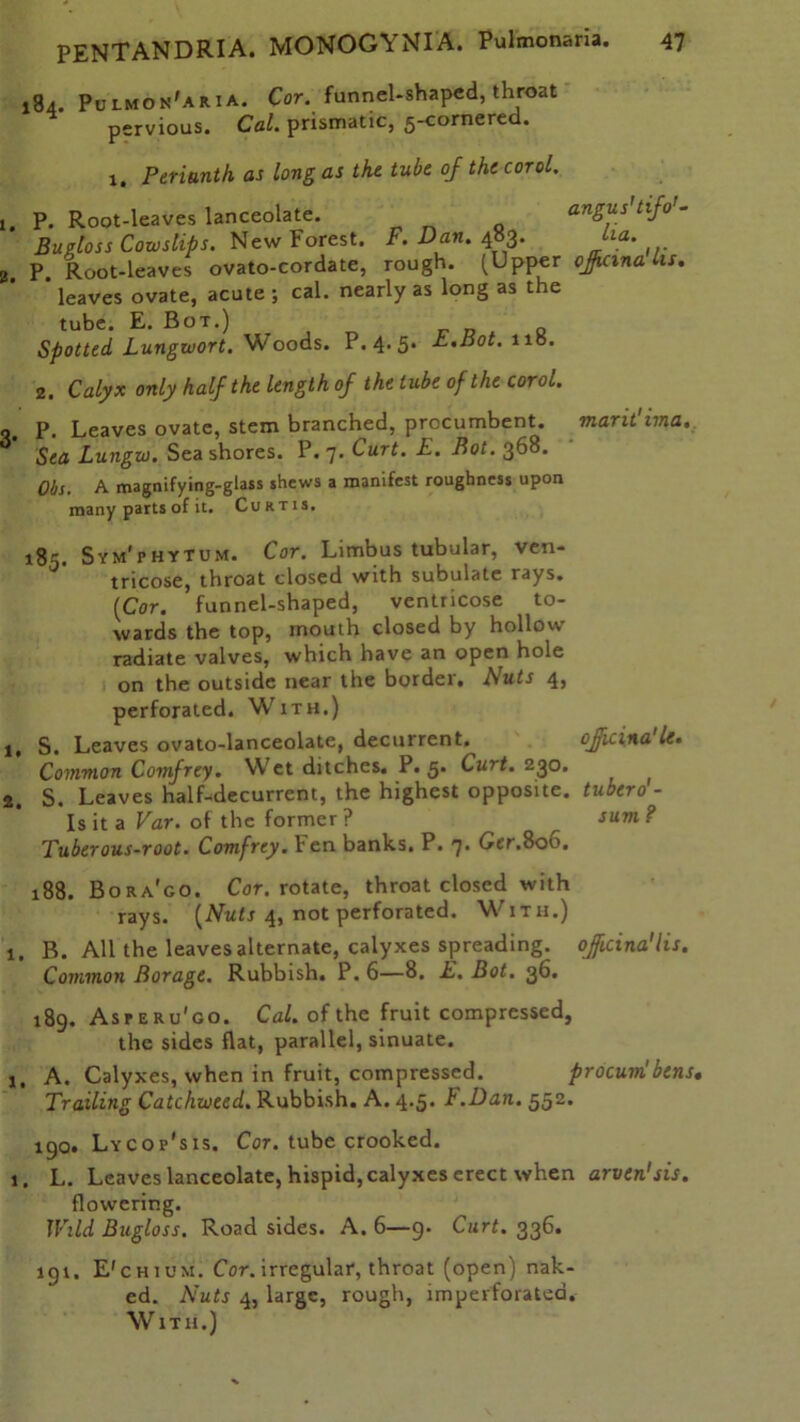 PENTANDRIA. MONOGYNIA. Pulmonaria. 47
184. PULMON'ARIA. Cor. funnel-shaped, throat
pervious. Cal. prismatic, 5-cornered.
1. Perianth as long as the tube of the corol.
1. P. Root-leaves lanceolate. angus'tifo'-
Bugloss Cowslips. New Forest. F. Dan. 483. lia.
2. P. Root-leaves ovato-cordate, rough. (Upper officina'lis.
leaves ovate, acute; cal. nearly as long as the
tube. E. BOT.)
Spotted Lungwort. Woods. P. 4. 5. E. Bot. 118.
2. Calyx only half the length of the tube of the corol.
3. P. Leaves ovate, stem branched, procumbent. marit'ima.
Sea Lungw. Sea shores. P. 7. Curt. E. Bot. 368.
Obs. A magnifying-glass shews a manifest roughness upon
many parts of it. CURTIS.
185. SYM'PHYTUM. Cor. Limbus tubular, ven-
tricose, throat closed with subulate rays.
(Cor. funnel-shaped, ventricose to-
wards the top, mouth closed by hollow
radiate valves, which have an open hole
on the outside near the border. Nuts 4,
perforated. WITH.)
1. S. Leaves ovato-lanceolate, decurrent. officina'le.
Common Comfrey. Wet ditches. P. 5. Curt. 230.
2. S. Leaves half-decurrent, the highest opposite. tubero'-
Is it a Var. of the former? sum?
Tuberous-root. Comfrey. Fen banks. P. 7. Ger. 806.
188. BORA'GO. Cor. rotate, throat closed with
rays. (Nuts 4, not perforated. WITH.)
1. B. All the leaves alternate, calyxes spreading. officina'lis.
Common Borage. Rubbish. P. 6—8. E. Bot. 36.
189. ASPERU'GO. Cal. of the fruit compressed,
the sides flat, parallel, sinuate.
1. A. Calyxes, when in fruit, compressed. procum'bens.
Trailing Catchweed. Rubbish. A. 4.5. F. Dan. 552.
190. LYCOP'SIS. Cor. tube crooked.
1. L. Leaves lanceolate, hispid, calyxes erect when arven'sis.
flowering.
Wild Bugloss. Road sides. A. 6—9. Curt. 336.
191. E'CHIUM. Cor. irregular, throat (open) nak-
ed. Nuts 4, large, rough, imperforated.
WITH.)